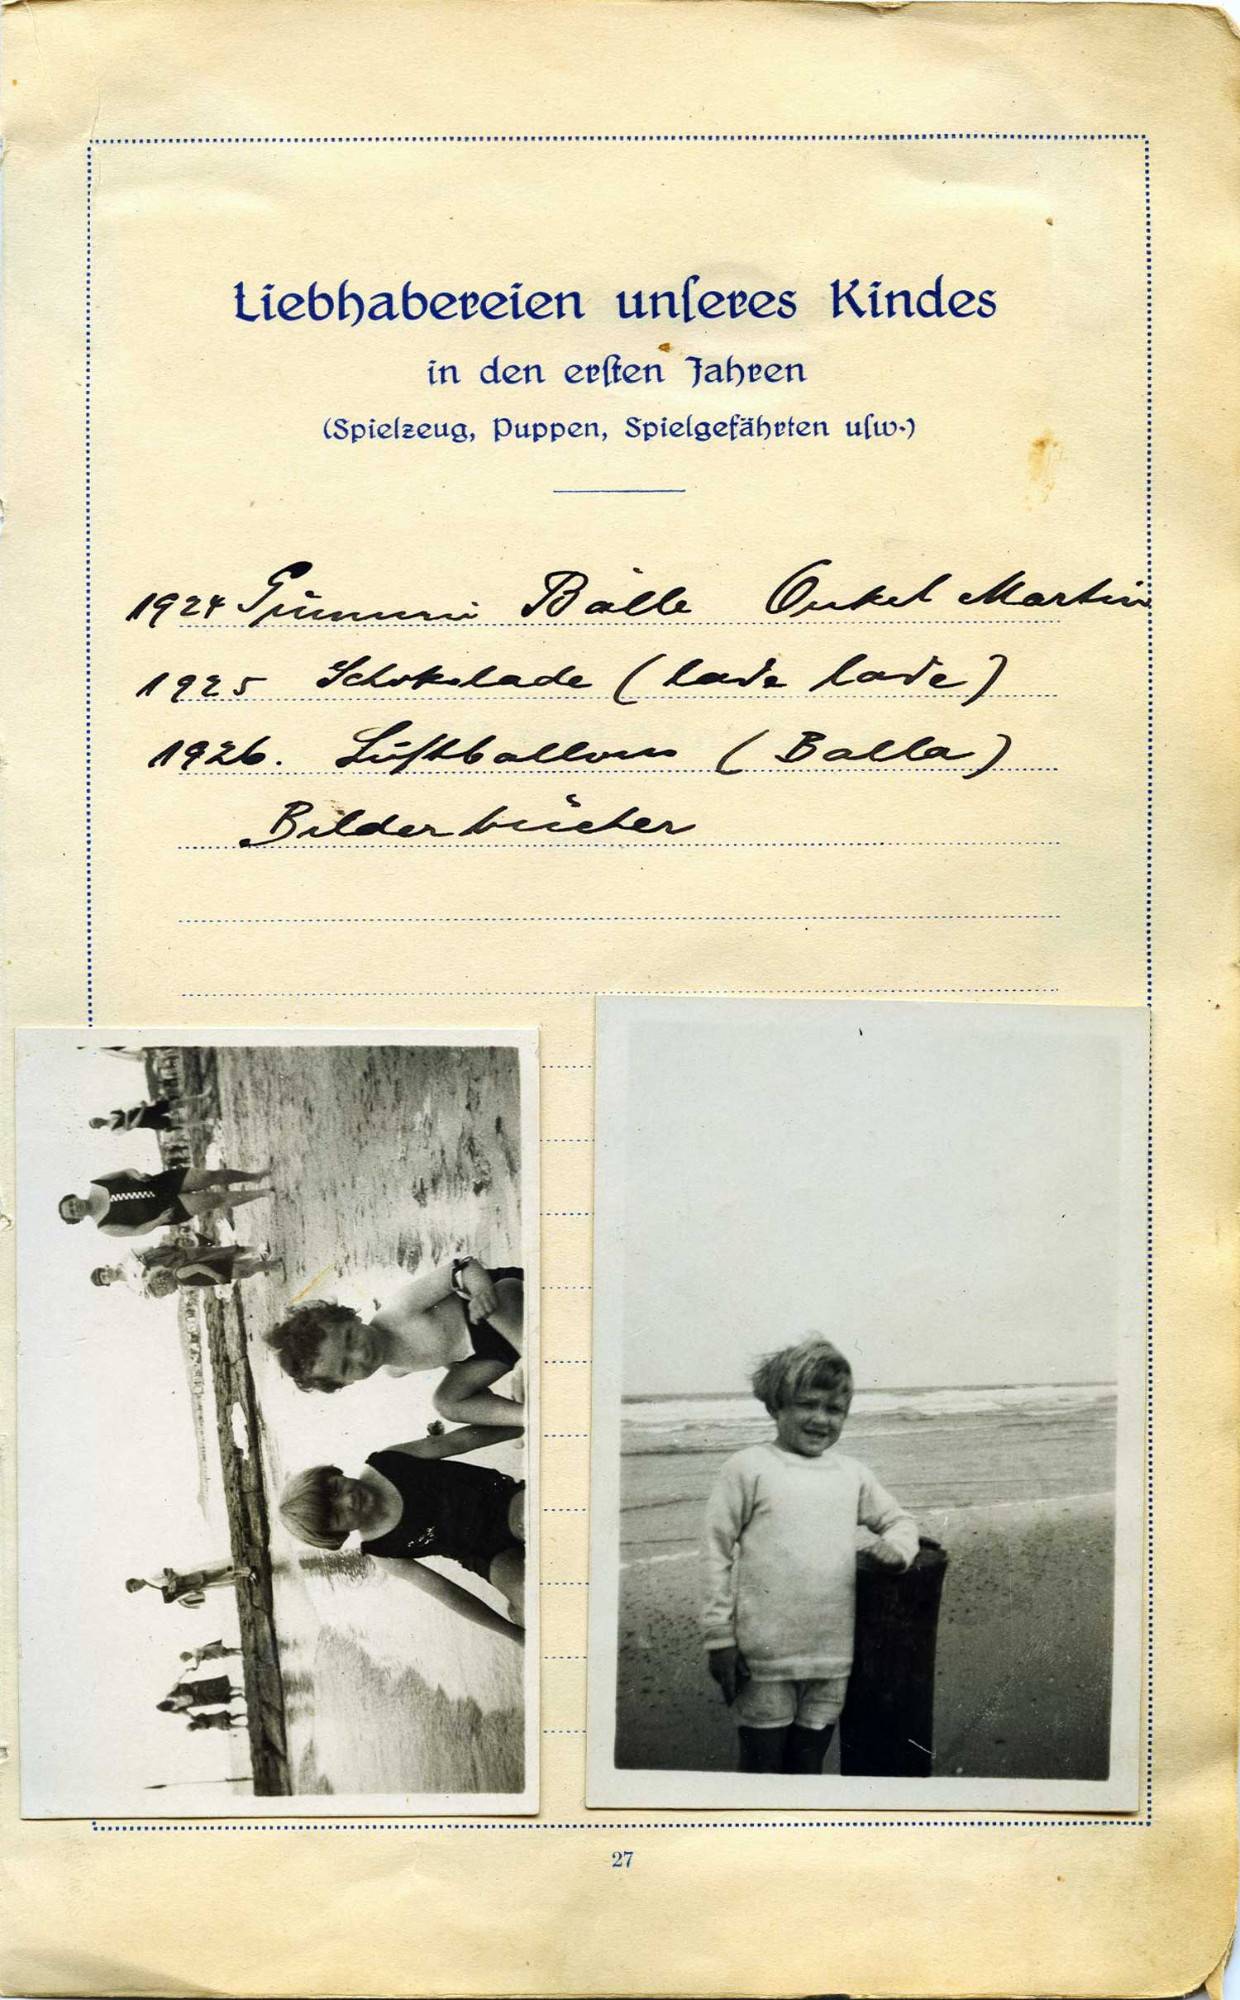 Liebhabereien unſeres Kindes
in den erſten Jahren
(Spielzeug, Puppen, Spielgefährten uſw.)
1924 Gummi Bälle Onkel Martin
1925 Schokolade (lade lade)
1926. Luftballons (Balla)
Bilderbücher
27